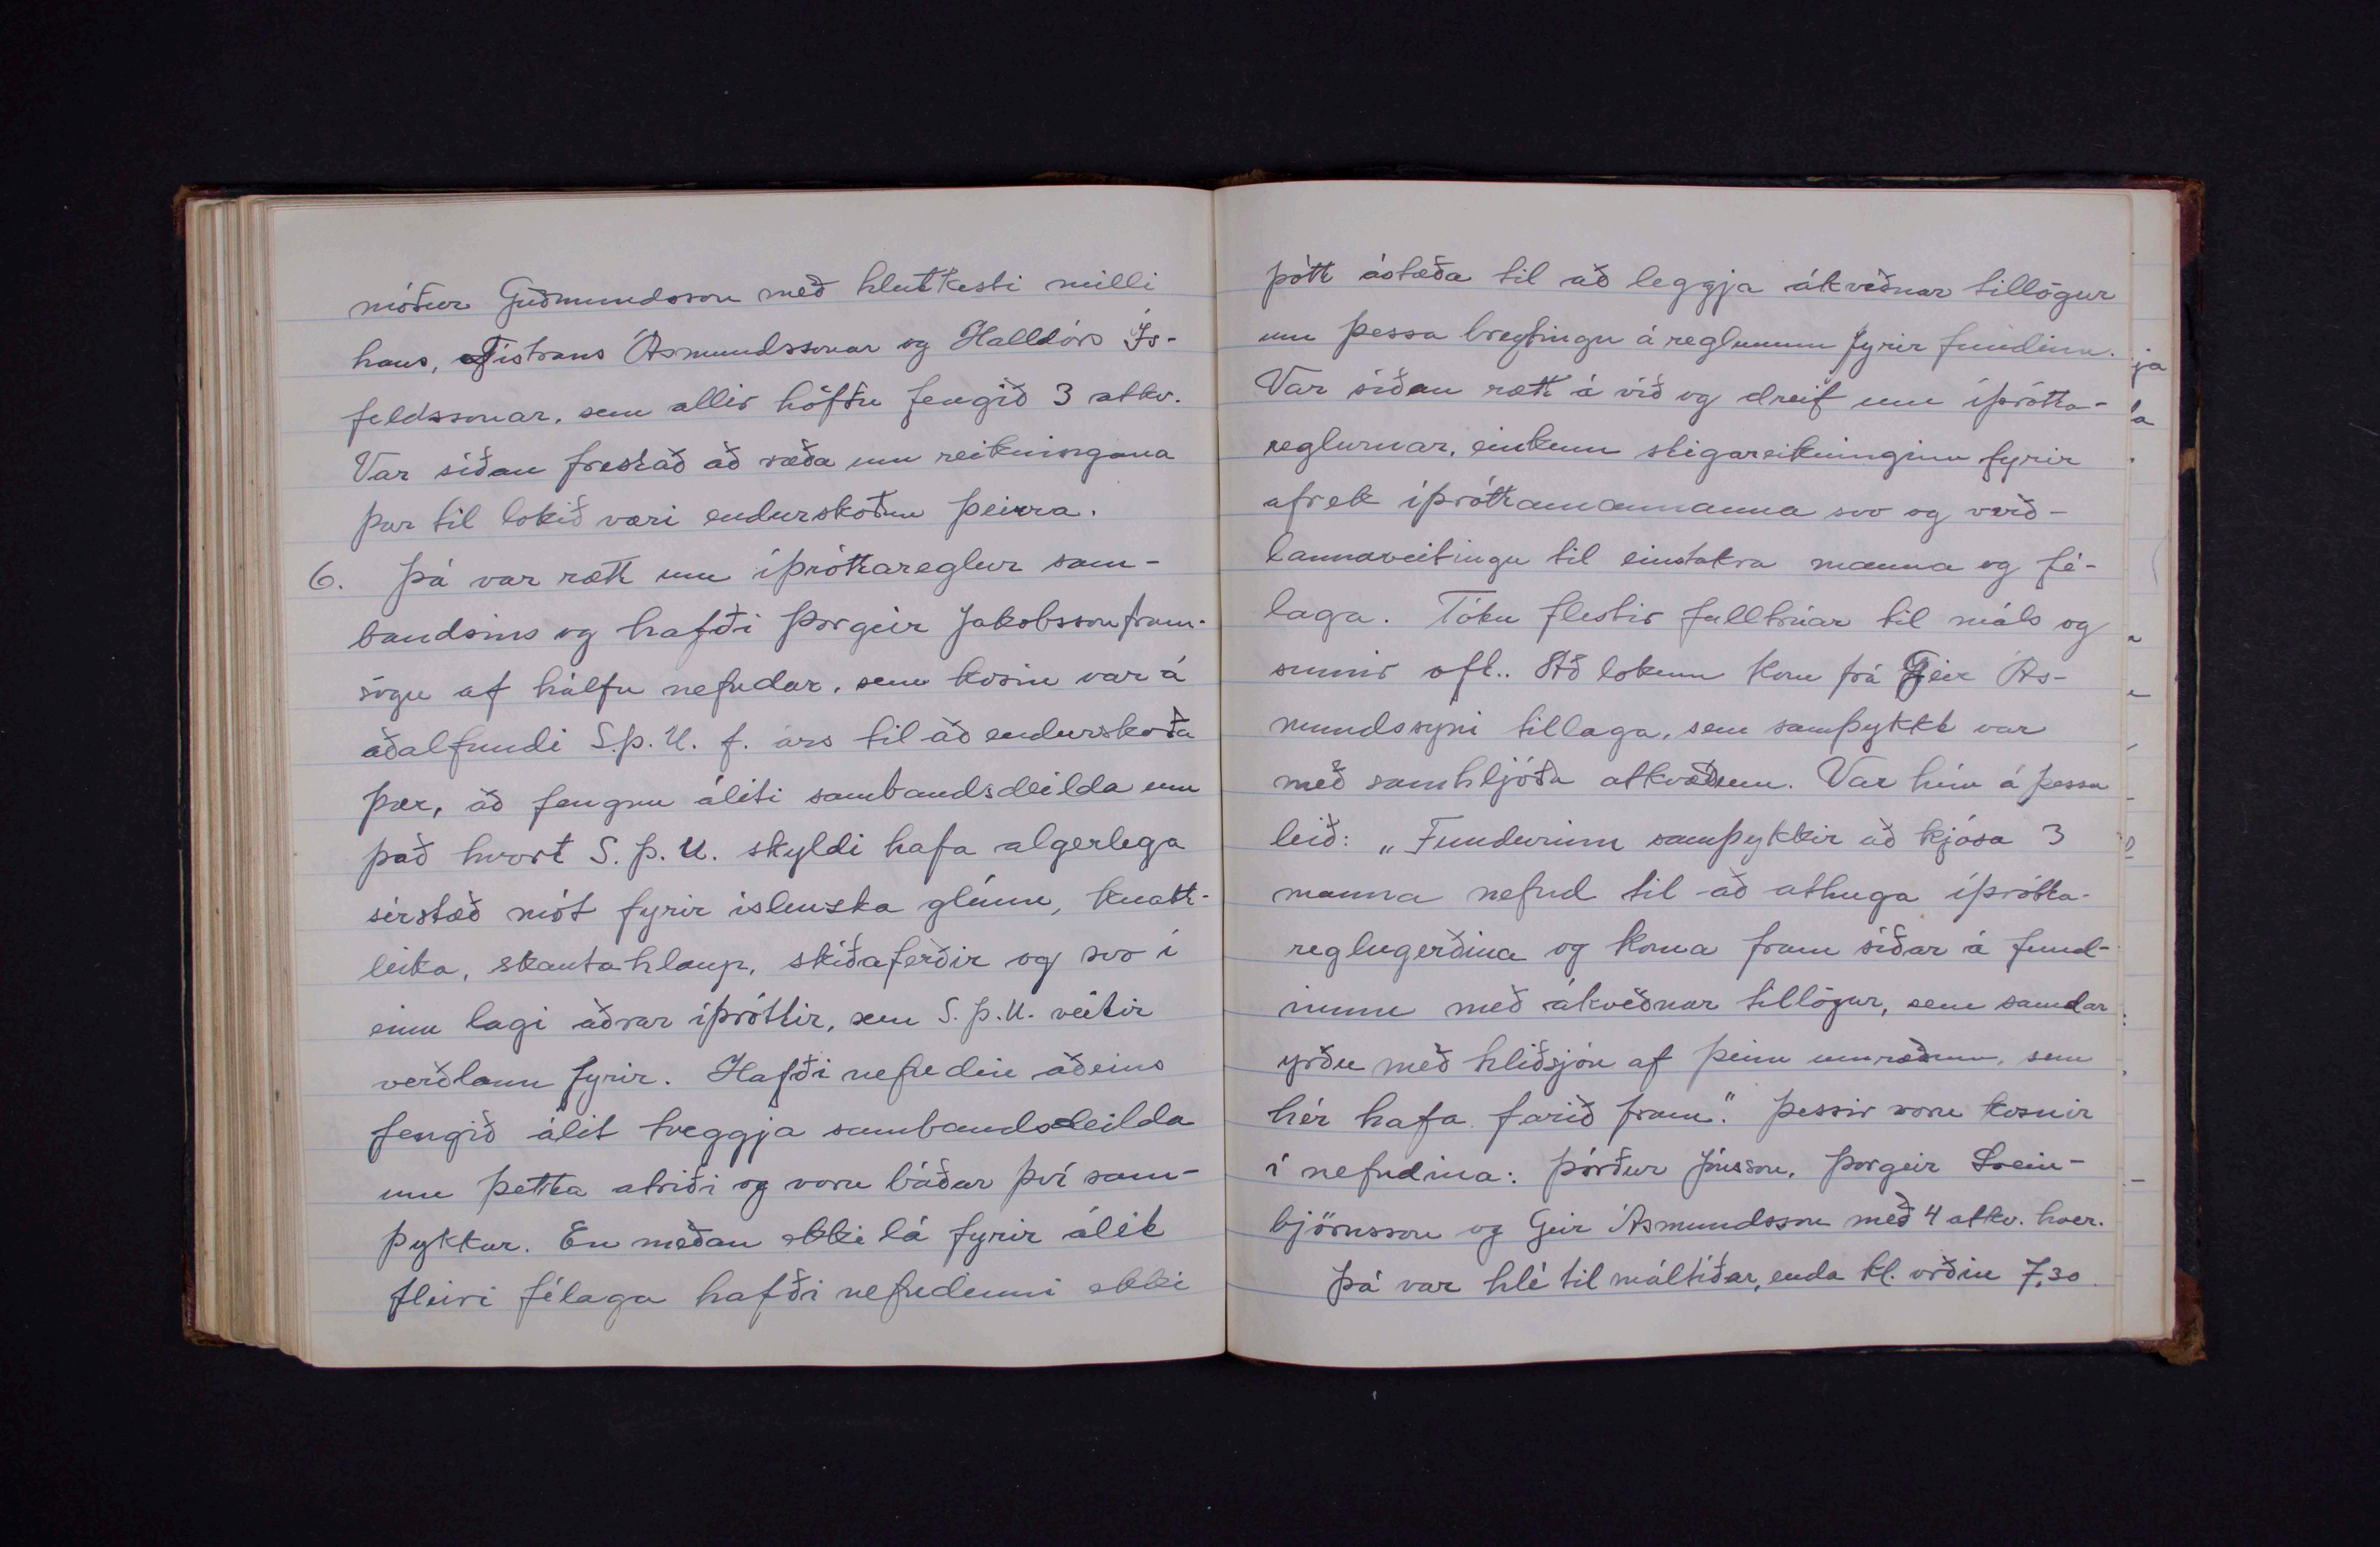 móður Guðmundsson með hlutkesti milli
hans, Tistrans Ásmundssonar og Halldórs Ís-
feldssonar, sem allir höfðu fengið 3 atkv.
Var síðan frestað að ræða um reikningana
þar til lokið væri endurskoðun þeirra.
6. Þá var rætt um íþróttareglur sam-
bandsins og hafði Þorgeir Jakobsson fram-
sögu af hálfu nefndar, sem kosin var á
aðalfundi S.Þ.U. f. árs til að endurskoða
þær, að fengnu áliti sambandsdeilda um
það hvort S.Þ.U. skyldi hafa algerlega
sérstæð mót fyrir íslenzka glímu, knatt-
leika, skautahlaup, skíðaferðir og svo í
einu lagi aðrar íþróttir, sem S.Þ.U. veitir
verðlaun fyrir. Hafði nefndin aðeins
fengið álit tveggja sambandsdeilda
um þetta atriði og voru báðar því sam-
þykkar. En meðan ekki lá fyrir álit
fleiri félaga hafði nefndinni ekki
þótt ástæða til að leggja ákveðnar tillögur
um þessa breytingu á reglunum fyrir fundinn.
Var síðan rætt á víð og dreif um íþrótta-
reglurnar, einkum stigareikninginn fyrir
afrek íþróttamannanna svo og verð-
launaveitingu til einstakra manna og fé-
laga. Tóku flestir fulltrúar til máls og
sumir oft.. Að lokum kom frá Geir Ás-
mundssyni tillaga, sem samþykkt var
með samhljóða atkvæðum. Var hún á þessa
leið: „Fundurinn samþykkir að kjósa 3
manna nefnd til að athuga íþrótta-
reglugerðina og koma fram síðar á fund-
inum með ákveðnar tillögur, sem samdar
yrðu með hliðsjón af þeim umræðum, sem
hér hafa farið fram." Þessir voru kosnir
í nefndina: Þórður Jónsson, Þorgeir Svein-
björnsson og Geir Ásmundsson með 4 atkv. hver.
Þá var hlé til máltíðar, enda kl. orðin 7,30.